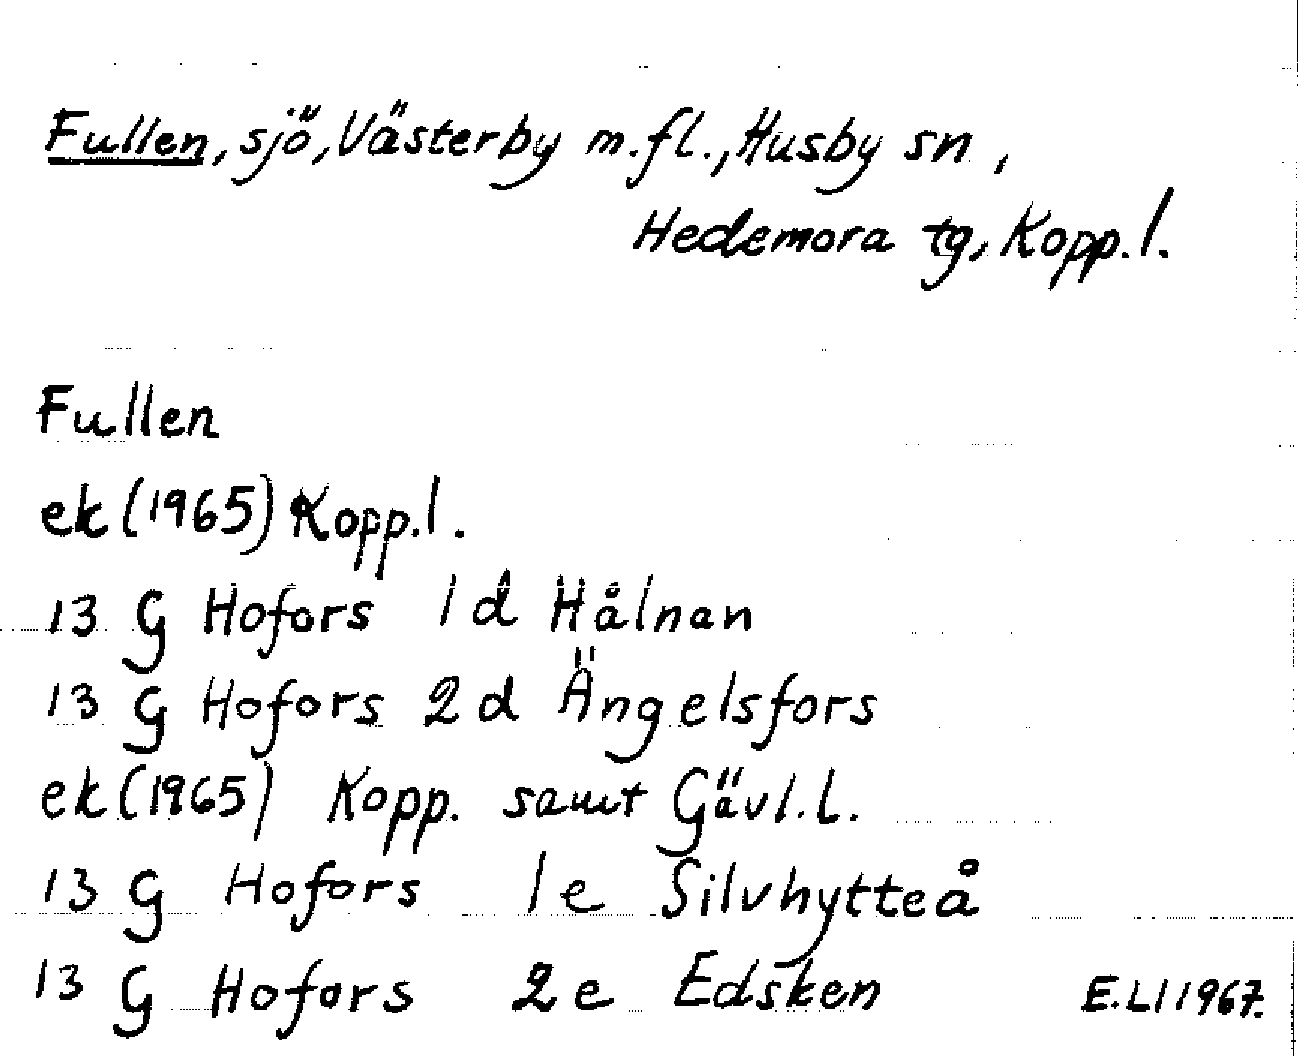 Fullen, sjö, Västerby m.fl., Husby sn,
Hedemora tg, Kopp.l.
Fullen
ek (1965) Kopp.l.
13 G Hofors 1d Hålnan
13 G Hofors 2d Ängelsfors
ek (1965) Kopp. samt Gävl.L.
13 G Hofors 1e Silvhytteå
13 G Hofors 2e Edsken E.Ll 1967.